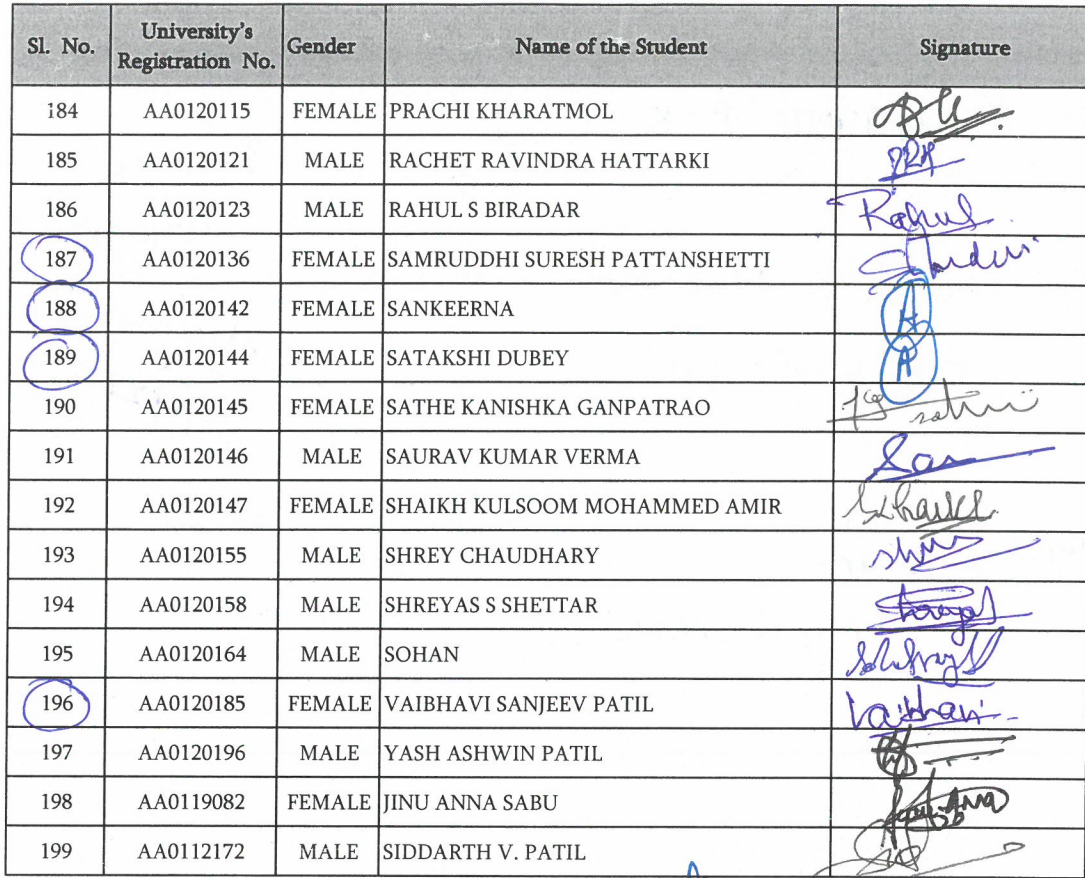 Sl. No. University's Registration No. Gender Name of the Student Signature
184 AA0120115 FEMALE PRACHI KHARATMOL
185 AA0120121 MALE RACHET RAVINDRA HATTARKI
186 AA0120123 MALE RAHUL S BIRADAR Rahul
187 AA0120136 FEMALE SAMRUDDHI SURESH PATTANSHETTI
188 AA0120142 FEMALE SANKEERNA A
189 AA0120144 FEMALE SATAKSHI DUBEY A
190 AA0120145 FEMALE SATHE KANISHKA GANPATRAO
191 AA0120146 MALE SAURAV KUMAR VERMA
192 AA0120147 FEMALE SHAIKH KULSOOM MOHAMMED AMIR
193 AA0120155 MALE SHREY CHAUDHARY
194 AA0120158 MALE SHREYAS S SHETTAR
195 AA0120164 MALE SOHAN
196 AA0120185 FEMALE VAIBHAVI SANJEEV PATIL Vaibhavi
197 AA0120196 MALE YASH ASHWIN PATIL
198 AA0119082 FEMALE JINU ANNA SABU
199 AA0112172 MALE SIDDARTH V. PATIL